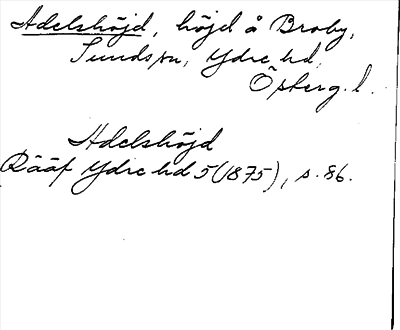 Adelshöjd, höjd å Broby,
Sunds sn, Ydre hd,
Östergl.
Adelshöjd
Rääf Ydre hd 5 (1875), s. 86.